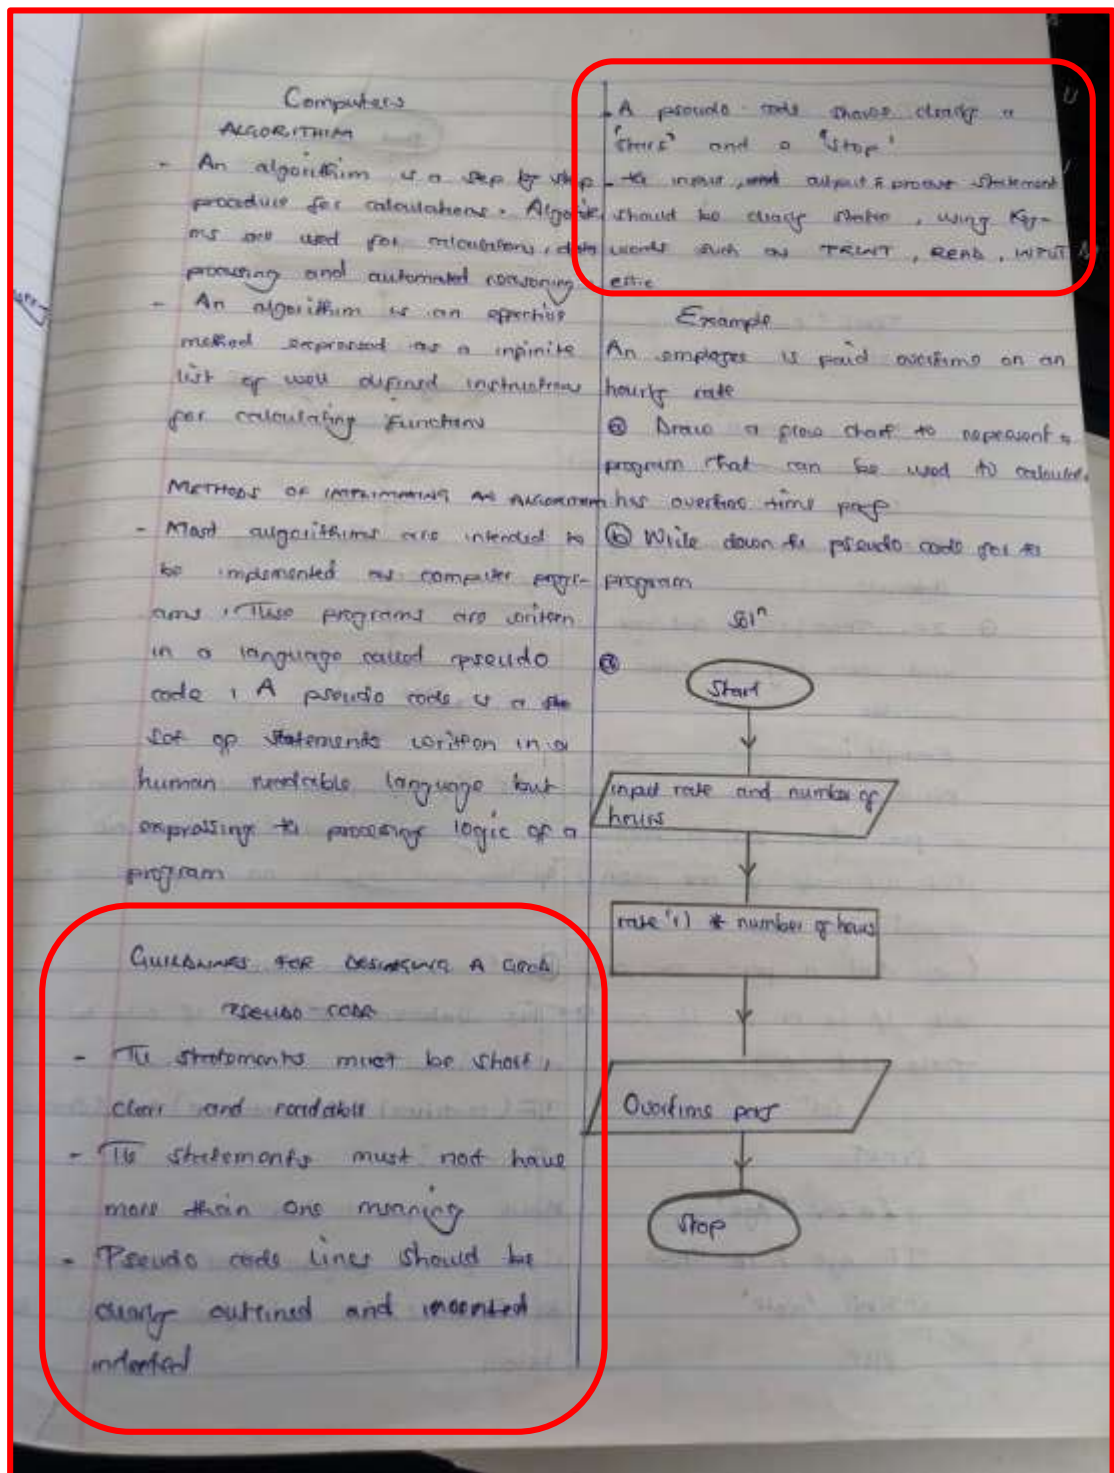 Computers
ALGORITHIM
- An algorithim is a step by step
procedure for calculations. Algorith
ms are used for calculations, data
processing and automated reasoning
- An algorithim is an effective
method expressed as a infinite
list of well defined instructions
for calculating functions
METHODS OF IMPLIMATING AN ALGORITHM
- Most algorithims are intended to
be implemented as computer progr-
ams. These programs are written
in a language called pseudo
code. A pseudo code is a
set of statements written in a
human readable language but
expressing the processing logic of a
program
GUILDLINES FOR DESINGING A GOOD
PSEUDO-CODE
- The statements must be short,
clear and readable
- The statements must not have
more than one meaning
- Pseudo code lines should be
clearly outlined and
indented
- A pseudo code shows clearly a
'start' and a 'stop'
- the input, output & process statement
should be clearly stated, using Key-
words such as PRINT, READ, INPUT
ettc
Example
An employee is paid overtime on an
hourly rate
ⓐ Draw a flow chart to represent a
program that can be used to calculate
his overtime time pay
ⓑ Write down the pseudo code for the
program
Solⁿ
ⓐ
Start
input rate and number of
hours
rate * number of hours
Overtime pay
Stop